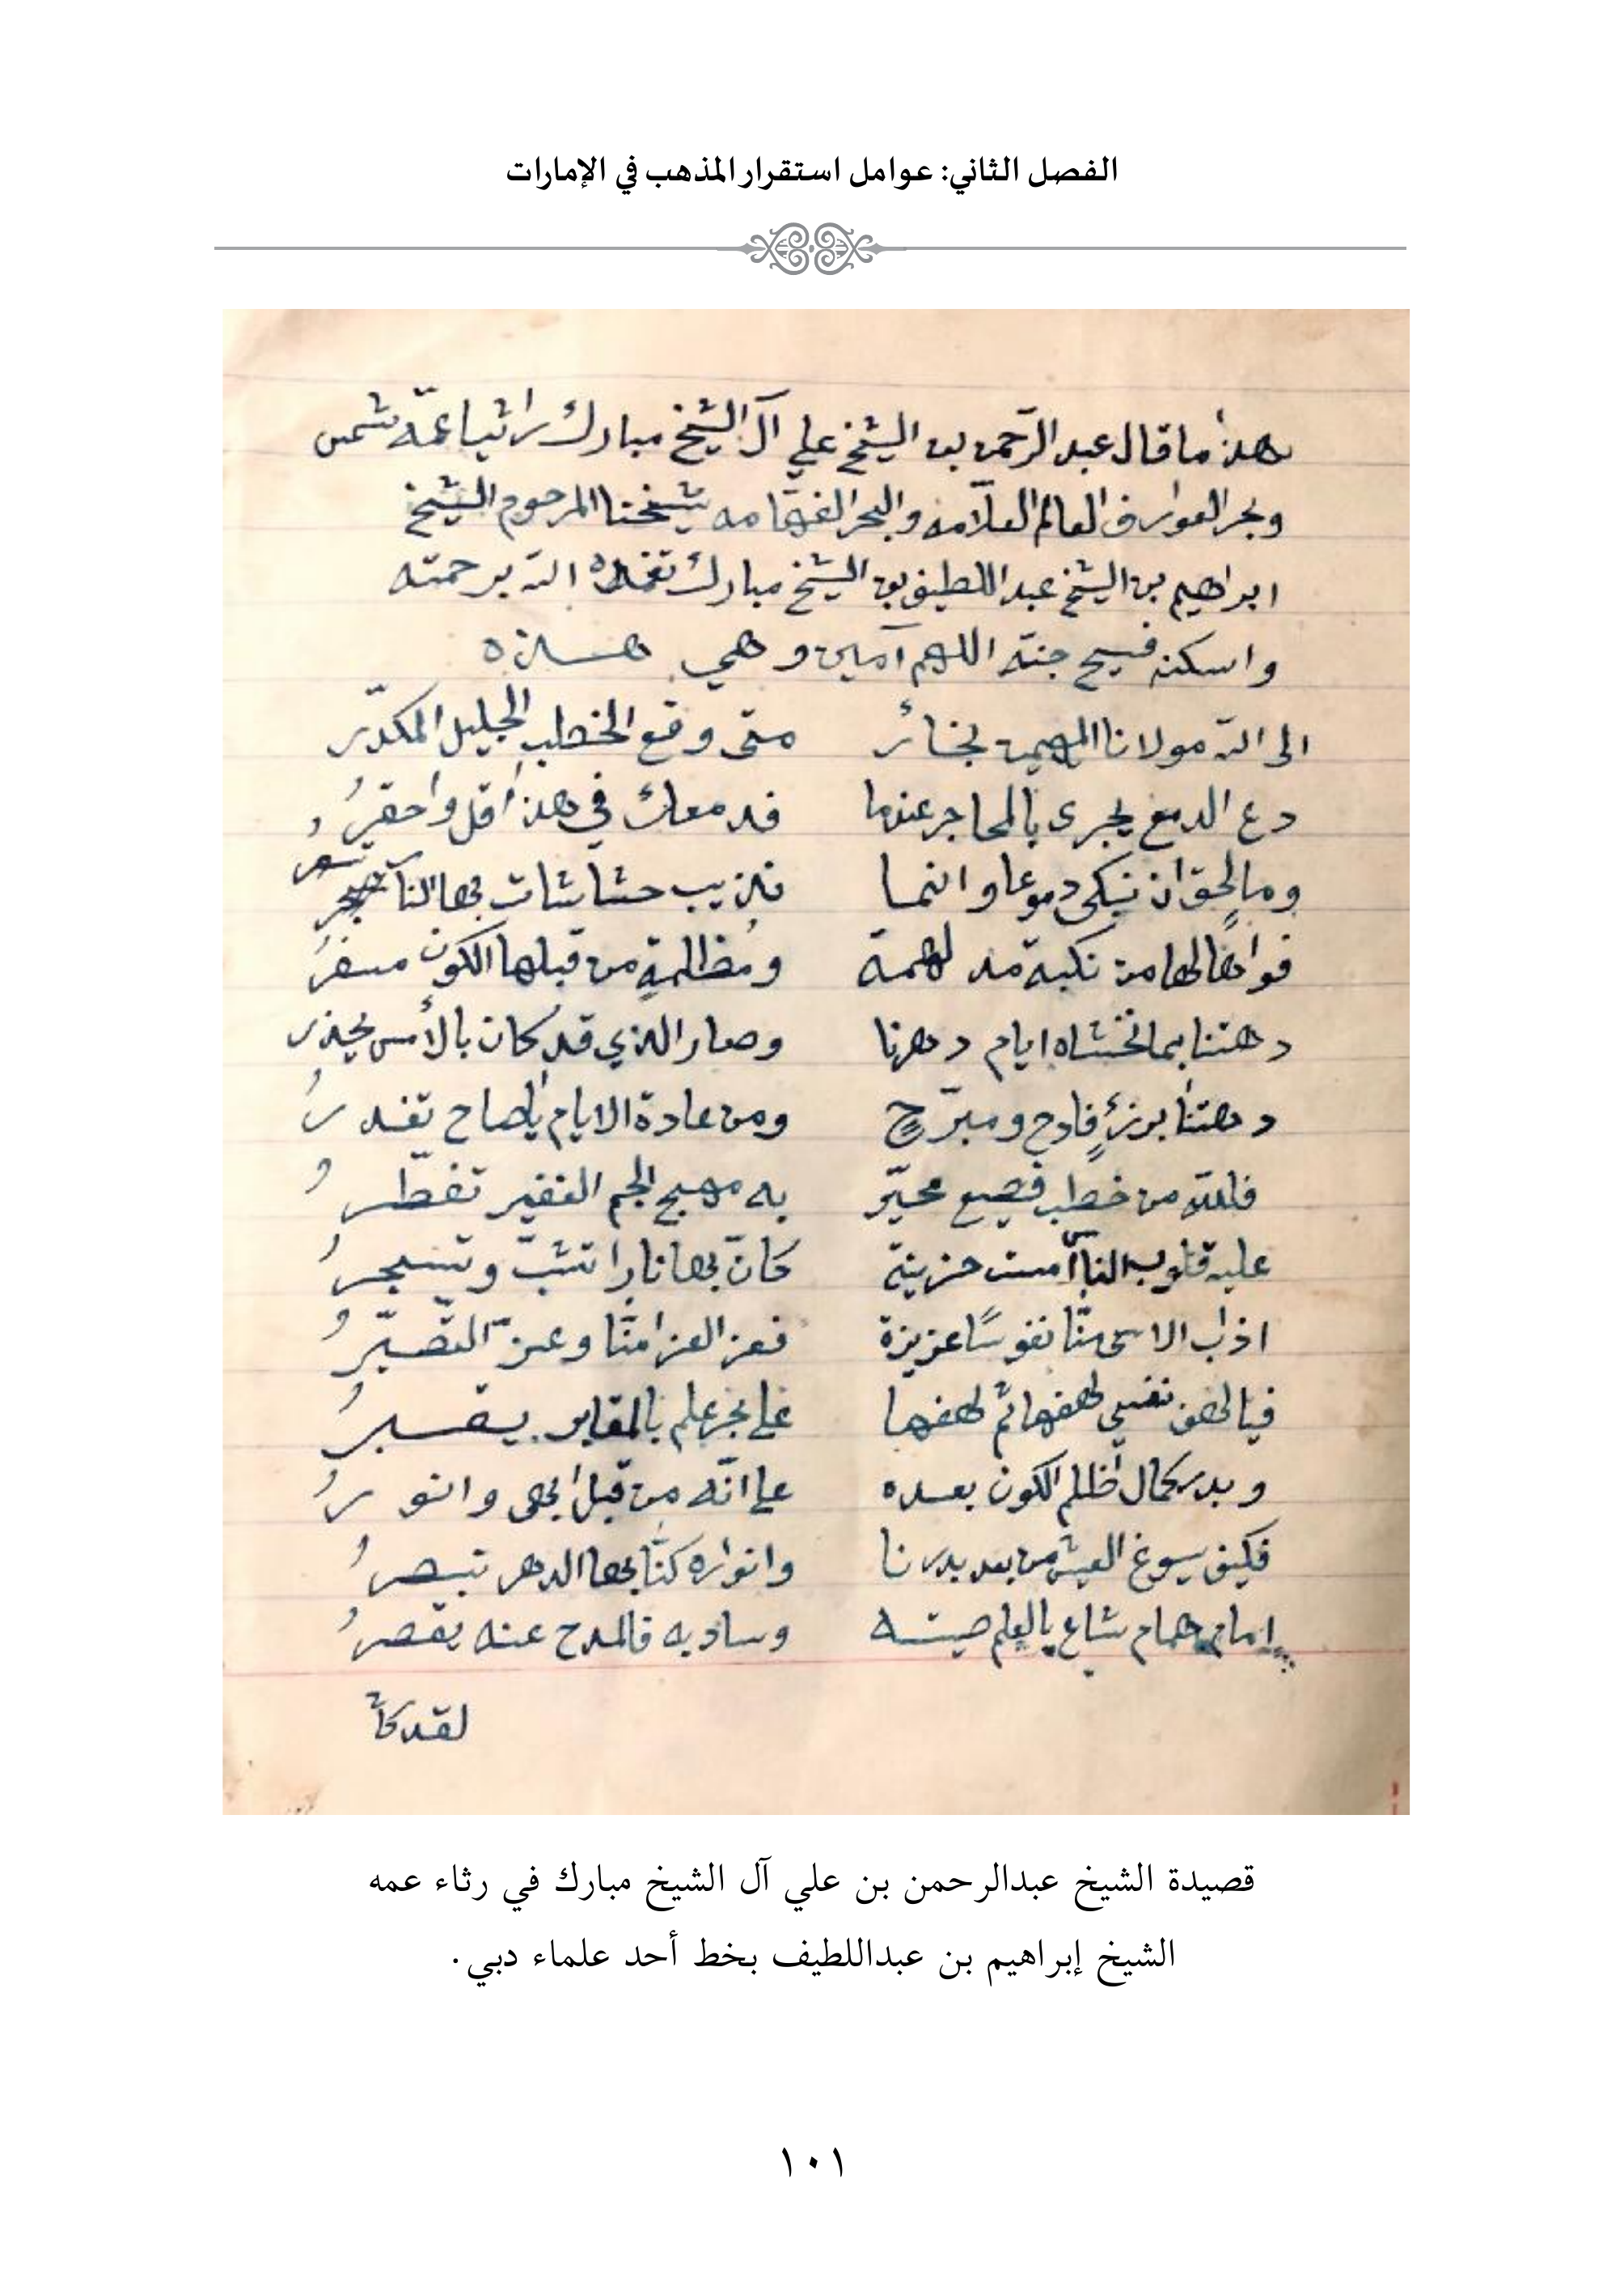 الفصل الثاني: عوامل استقرار المذهب في الإمارات
هذا ما قال عبد الرّحمن بن الشيخ علي آل الشيخ مبارك راثيا عمّه شمس
وبحر العوارف العالم العلّامه والبحر الفهّامه شيخنا المرحوم الشيخ
ابراهيم بن الشيخ عبد اللطيف بن الشيخ مبارك تغمده الله برحمته
واسكنه فسيح جنته اللهم آمين وهي هـــذه
الى الله مولانا المهيمن نجأر متى وقع الخطب الجليل المكدّر
دع الدمع يجرى بالمحاجر عندما فدمعك في هذا أقل واحقرُ
وما لحق ان نبكى دموعا وانما نذيب حشاشات بها النار تسعرُ
فواهًا لها من نكبة مدلهمة ومُظلمةٍ من قبلها الكون مسفرُ
دهتنا بما نخشاه ايام دهرنا وصار الذي قد كان بالأمس يحذر
دهتنا برزءٍ فادحٍ ومبرّحٍ ومن عادة الايام ياصاح تغدرُ
فلله من خطب فضيع محيّر به مهج الجم الغفير تفطّرُ
عليه قلوب الناس أمست حزينة كانّ بها نارا تشبّ وتسجرُ
اذاب الاسى منّا نفوسًا عزيزة فعز العزا منّا وعزّ التصبّرُ
فيا لهف نفسي لهفها ثم لهفها على بحر علم بالمقابر يقبرُ
وبدر كمال أظلم الكون بعده على انّه من قبل ابهى وانورُ
فكيف يسوغ العيش من بعد بدرنا وانواره كنّا بها الدهر نبصرُ
إمام همام شاع بالعلم صيته وساد به فالمدح عنه يقصرُ
لقد كان
قصيدة الشيخ عبدالرحمن بن علي آل الشيخ مبارك في رثاء عمه
الشيخ إبراهيم بن عبداللطيف بخط أحد علماء دبي.
١٠١